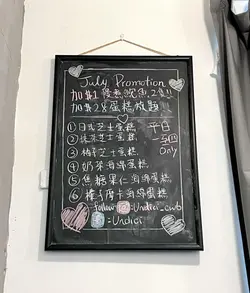 July Promotion
加$28蛋糕放題!!
① 日式芝士蛋糕 平日
② 抹茶芝士蛋糕
③ 柚子芝士蛋糕 Only
④ 奶茶海綿蛋糕
⑤ 焦糖果仁海綿蛋糕
⑥ 榛子摩卡海綿蛋糕
follow
: Undici_cwb
: Undici